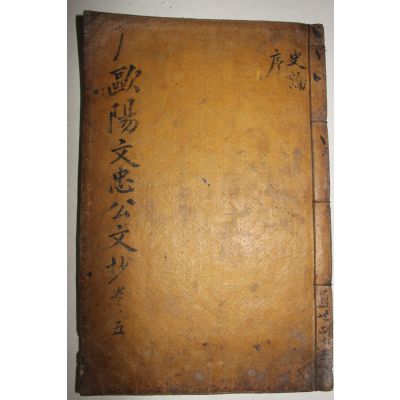 史論
序
歐陽文忠公文抄 卷五